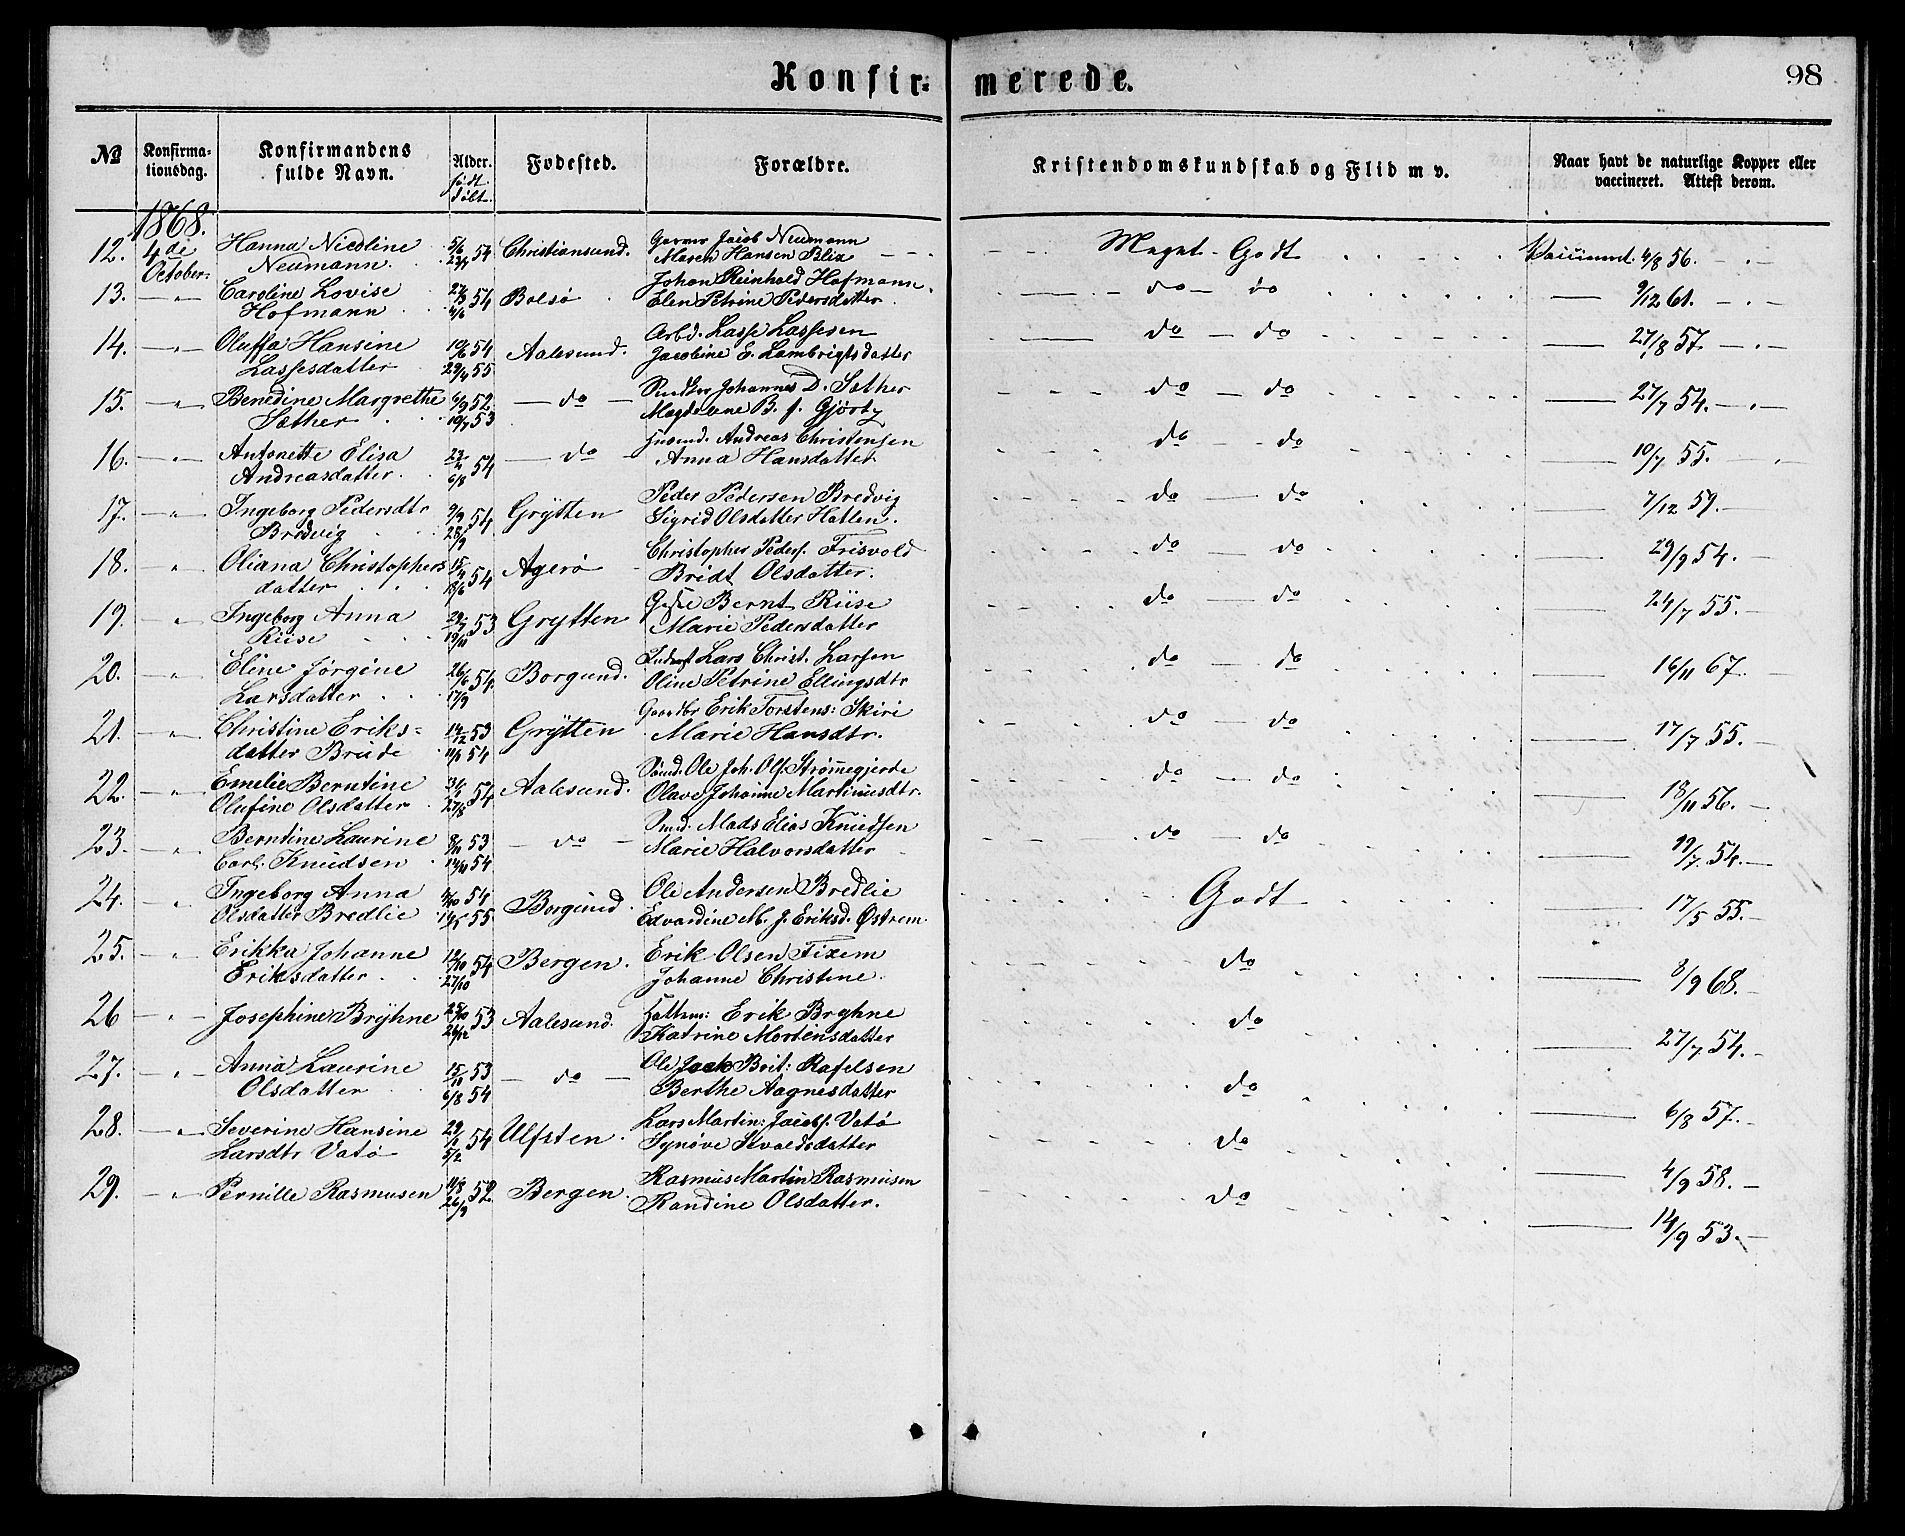 Konfir= merede. 98
№ Konfirma-tionsdag. Konfirmandens fulde Navn. Alder. født døbt. Fødested. Forældre. Kristendomskundskab og Flid m v. Naar havt de naturlige Kopper eller vaccineret. Attest derom.
1868.
12. 4de October Hanna Nicoline Neumann. 5/6 54 Christiansund. Garver Jacob Neumann Maren Hansen Blix Meget Godt Vaccineret 4/8 56.
13. — " — Caroline Lovise Hofmann 54 Bolsø Johan Reinhold Hofmann. Elen Petrine Pedersdatter. do — do 9/12 61.
14. — " — Oluffa Hansine Lassesdatter 19/6 54 29/4 55 Aalesund. Arbd. Lasse Lassesen Jacobine E. Lambrigtsdatter do — do 27/8 57.
15. — " — Benedine Margrethe Sæther 6/9 52. 19/7 53 — do — Johannes D. Sæther Magdalene B. f. Gjørtz do — do 27/7 54.
16. — " — Antonette Elisa Andreasdatter. 23/4 54 6/8 — do — Huusmd. Andreas Christensen Anna Hansdatter do — do 10/7 55.
17. — " — Ingeborg Pedersdtr Bredvig 9/9 54 28/9 Grÿtten Peder Pedersen Bredvig Sigrid Olsdatter Hatlen. do — do 7/12 59.
18. — " Oliana Christophersdatter 15/4 54 18/6 Agerø Christopher Peders. Frisvold Bridt Olsdatter. do — do 29/9 54.
19. — " Ingeborg Anna Riise 29/7 53 19/11 Grytten Bernt Riise Marie Pedersdatter do — do 24/7 55.
20. — " Eline Jørgine Larsdatter 26/6 54. 17/9 Borgund. Inderst Lars Christ. Larsen Oline Petrine Ellingsdtr do — do 16/11 67.
21. — " — Christine Eriks=datter Brude 14/12 53 54 Grÿtten Gaardbr Erik Torstens: Skiri Marie Hansdtr. do — do 17/7 55.
22. — " — Emelie Berntine Olufine Olsdatter 54 27/8 Aalesund. Sømd. Ole Joh. Ols. Strømmegjerde Olave Johanne Martinusdtr. do — do 18/11 56.
23. — " Berntine Laurine Carl. Knudsen 53 54 — do — Smed. Mads Elias Knudsen Marie Halvorsdatter do — do 54.
24. — " Ingeborg Anna Olsdatter Bredlie 54 55 Borgund. Ole Andersen Bredlie Edvardine M. J. Eriksd. Østrem. Godt 17/5 55.
25. — " Erikka Johanne Eriksdatter 19/10 54 27/10 Bergen. Erik Olsen Fixem Johanne Christine. do 8/9 68.
26 — " — Josephine Brÿhne 25/10 53 26/12 Aalesund. Erik Bryhne Katrine Mortensdatter do 27/7 54.
27. — " — Anna Laurine Olsdatter 15/11 53 6/8 54 — do — Ole Jack Brit: Rafelsen Berthe Aagnesdatter do 6/8 57.
28. — " — Severine Hansine Larsdtr Vatø 29/1 54 5/2 Ulfsten. Lars Martin: Jacobs. Vatø Synøve Sivaldsdatter do 4/9 58.
29. — " Pernille Rasmusen 11/8 52. 26/9 Bergen. Rasmus Martin Rasmusen Randine Olsdatter. do 14/9 53.